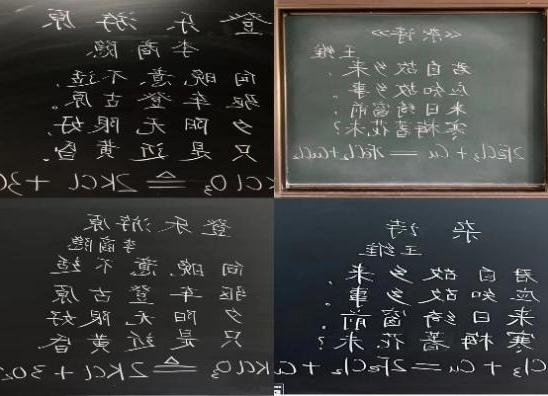 登乐游原
李商隐
向晚意不适,
驱车登古原。
夕阳无限好,
只是近黄昏.
KClO₃ ≜ 2KCl + 3O
《杂诗》
王维
君自故乡来,
应知故乡事。
来日绮窗前,
寒梅著花未?
2FeCl₃ + Cu = 2FeCl₂ + CuCl₂
登乐游原
李商隐
向晚意不适
驱车登古原
夕阳无限好
只是近黄昏.
KClO₃ ≜ 2KCl + 3O₂
杂诗
王维
君自故乡来,
应知故乡事.
来日绮窗前.
寒梅著花未?
Cl₃ + Cu = 2FeCl₂ + Cu